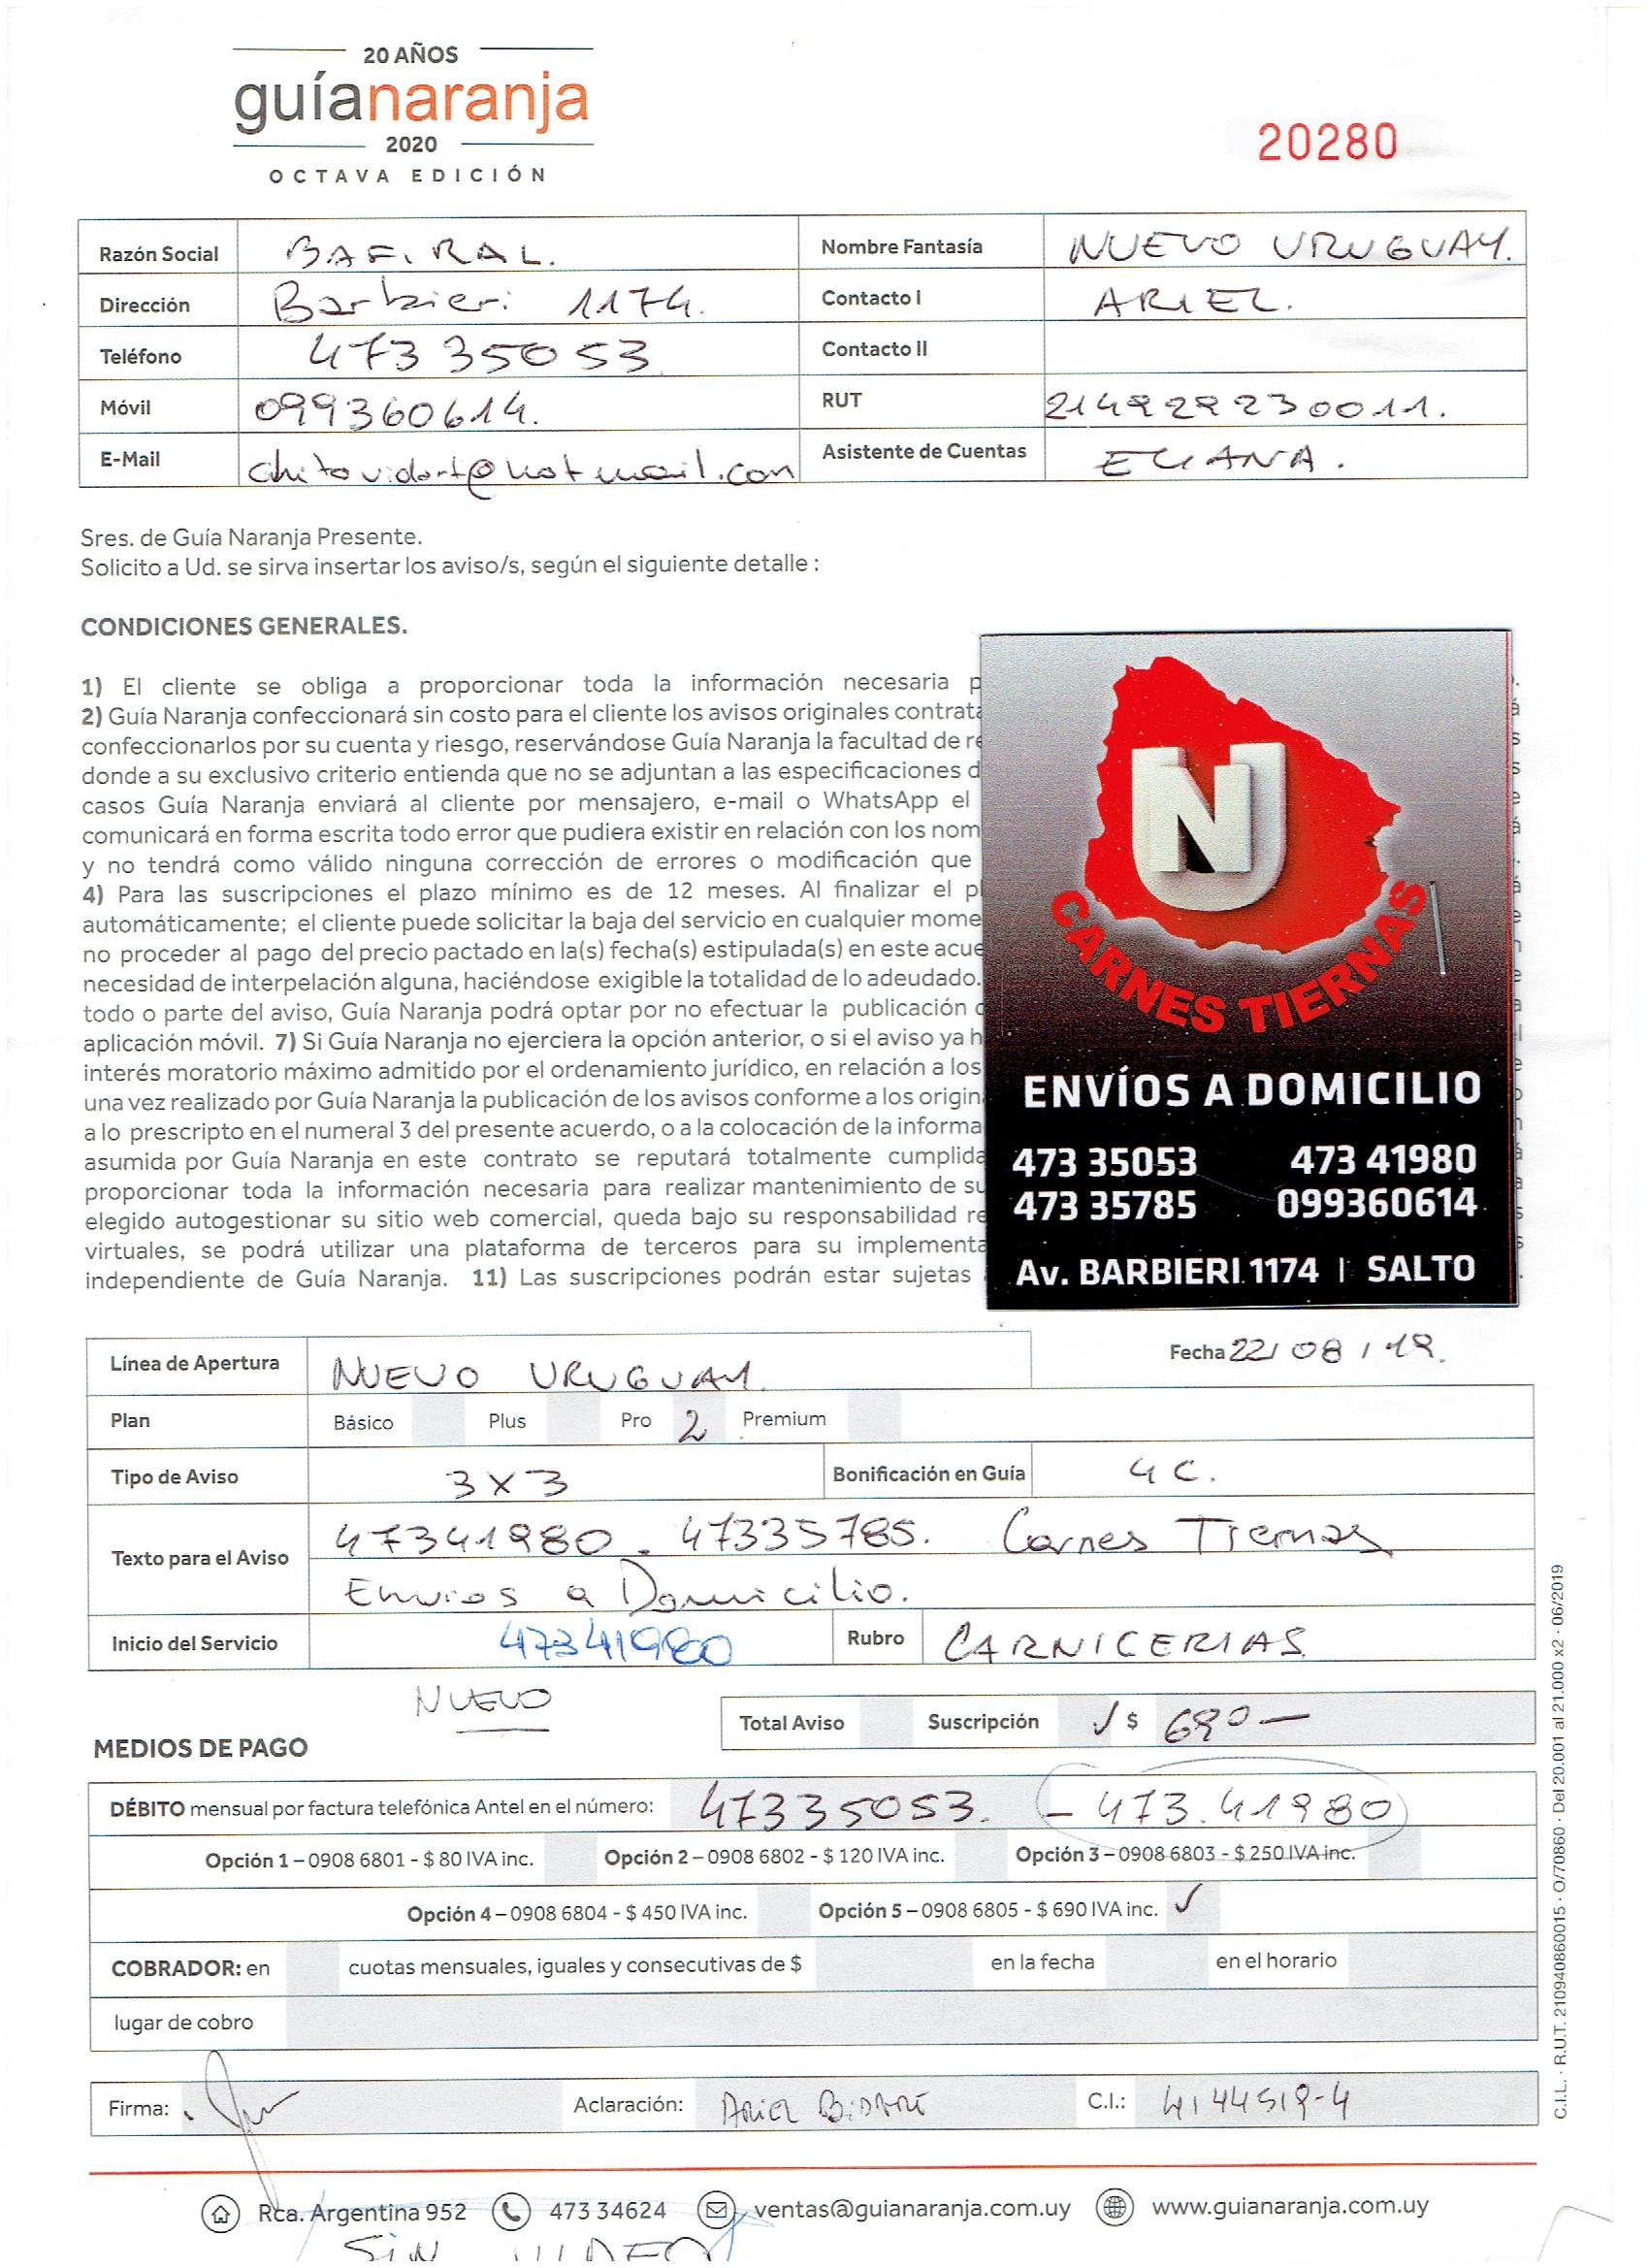 20 AÑOS
guíanaranja
2020
OCTAVA EDICIÓN
20280
Razón Social BAFIRAL. Nombre Fantasía NUEVO URUGUAY.
Dirección Barbieri 1174. Contacto I ARIEL.
Teléfono 473 35053 Contacto II
Móvil 099360614. RUT
E-Mail Asistente de Cuentas ELIANA.
Sres. de Guía Naranja Presente.
Solicito a Ud. se sirva insertar los aviso/s, según el siguiente detalle :
CONDICIONES GENERALES.
1) El cliente se obliga a proporcionar toda la información necesaria p
2) Guía Naranja confeccionará sin costo para el cliente los avisos originales contrata
confeccionarlos por su cuenta y riesgo, reservándose Guía Naranja la facultad de re
donde a su exclusivo criterio entienda que no se adjuntan a las especificaciones d
casos Guía Naranja enviará al cliente por mensajero, e-mail o WhatsApp el
comunicará en forma escrita todo error que pudiera existir en relación con los nom
y no tendrá como válido ninguna corrección de errores o modificación que
4) Para las suscripciones el plazo mínimo es de 12 meses. Al finalizar el pl
automáticamente; el cliente puede solicitar la baja del servicio en cualquier mome
no proceder al pago del precio pactado en la(s) fecha(s) estipulada(s) en este acue
necesidad de interpelación alguna, haciéndose exigible la totalidad de lo adeudado.
todo o parte del aviso, Guía Naranja podrá optar por no efectuar la publicación
aplicación móvil. 7) Si Guía Naranja no ejerciera la opción anterior, o si el aviso ya h
interés moratorio máximo admitido por el ordenamiento jurídico, en relación a los
una vez realizado por Guía Naranja la publicación de los avisos conforme a los origin
a lo prescripto en el numeral 3 del presente acuerdo, o a la colocación de la informa
asumida por Guía Naranja en este contrato se reputará totalmente cumplida
proporcionar toda la información necesaria para realizar mantenimiento de su
elegido autogestionar su sitio web comercial, queda bajo su responsabilidad re
virtuales, se podrá utilizar una plataforma de terceros para su implementa
independiente de Guía Naranja. 11) Las suscripciones podrán estar sujetas
NU
CARNES TIERNAS
ENVÍOS A DOMICILIO
473 35053 473 41980
473 35785 099360614
Av. BARBIERI 1174 | SALTO
Fecha 22/08/19.
Línea de Apertura NUEVO URUGUAY.
Plan Básico Plus Pro 2 Premium
Tipo de Aviso 3x3 Bonificación en Guía 4 C.
Texto para el Aviso 47341980. 47335785. Carnes Tiernas
Envios a Domicilio.
Inicio del Servicio 47341980 Rubro CARNICERIAS
NUEVO
Total Aviso Suscripción ✓ $ 690—
MEDIOS DE PAGO
DÉBITO mensual por factura telefónica Antel en el número: 47335053. - 473.41980
Opción 1 – 0908 6801 - $ 80 IVA inc. Opción 2 – 0908 6802 - $ 120 IVA inc. Opción 3 – 0908 6803 - $ 250 IVA inc.
Opción 4 – 0908 6804 - $ 450 IVA inc. Opción 5 – 0908 6805 - $ 690 IVA inc. ✓
COBRADOR: en cuotas mensuales, iguales y consecutivas de $ en la fecha en el horario
lugar de cobro
Firma: Aclaración: Ariel C.I.: 4144519-4
C.I.L. · R.U.T. 210940860015 · O/70860 · Del 20.001 al 21.000 x2 · 06/2019
Rca. Argentina 952 473 34624 ventas@guianaranja.com.uy www.guianaranja.com.uy
SIN